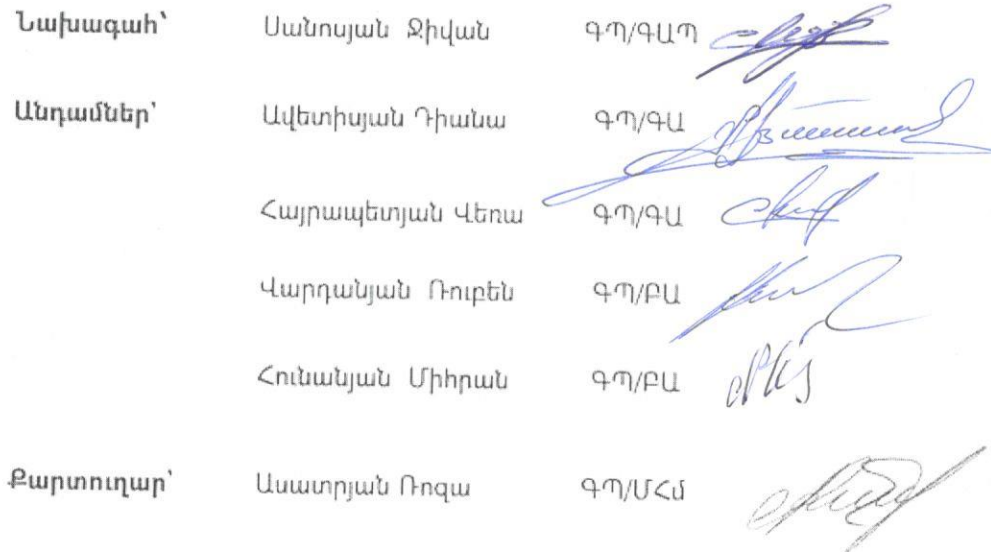 Նախագահ՝ Սանոսյան Ջիվան ԳՊ/ԳԱՊ
Անդամներ՝ Ավետիսյան Դիանա ԳՊ/ԳԱ
Հայրապետյան Վեռա ԳՊ/ԳԱ
Վարդանյան Ռուբեն ԳՊ/ԲԱ
Հունանյան Միհրան ԳՊ/ԲԱ
Քարտուղար՝ Ասատրյան Ռոզա ԳՊ/ՄՀմ